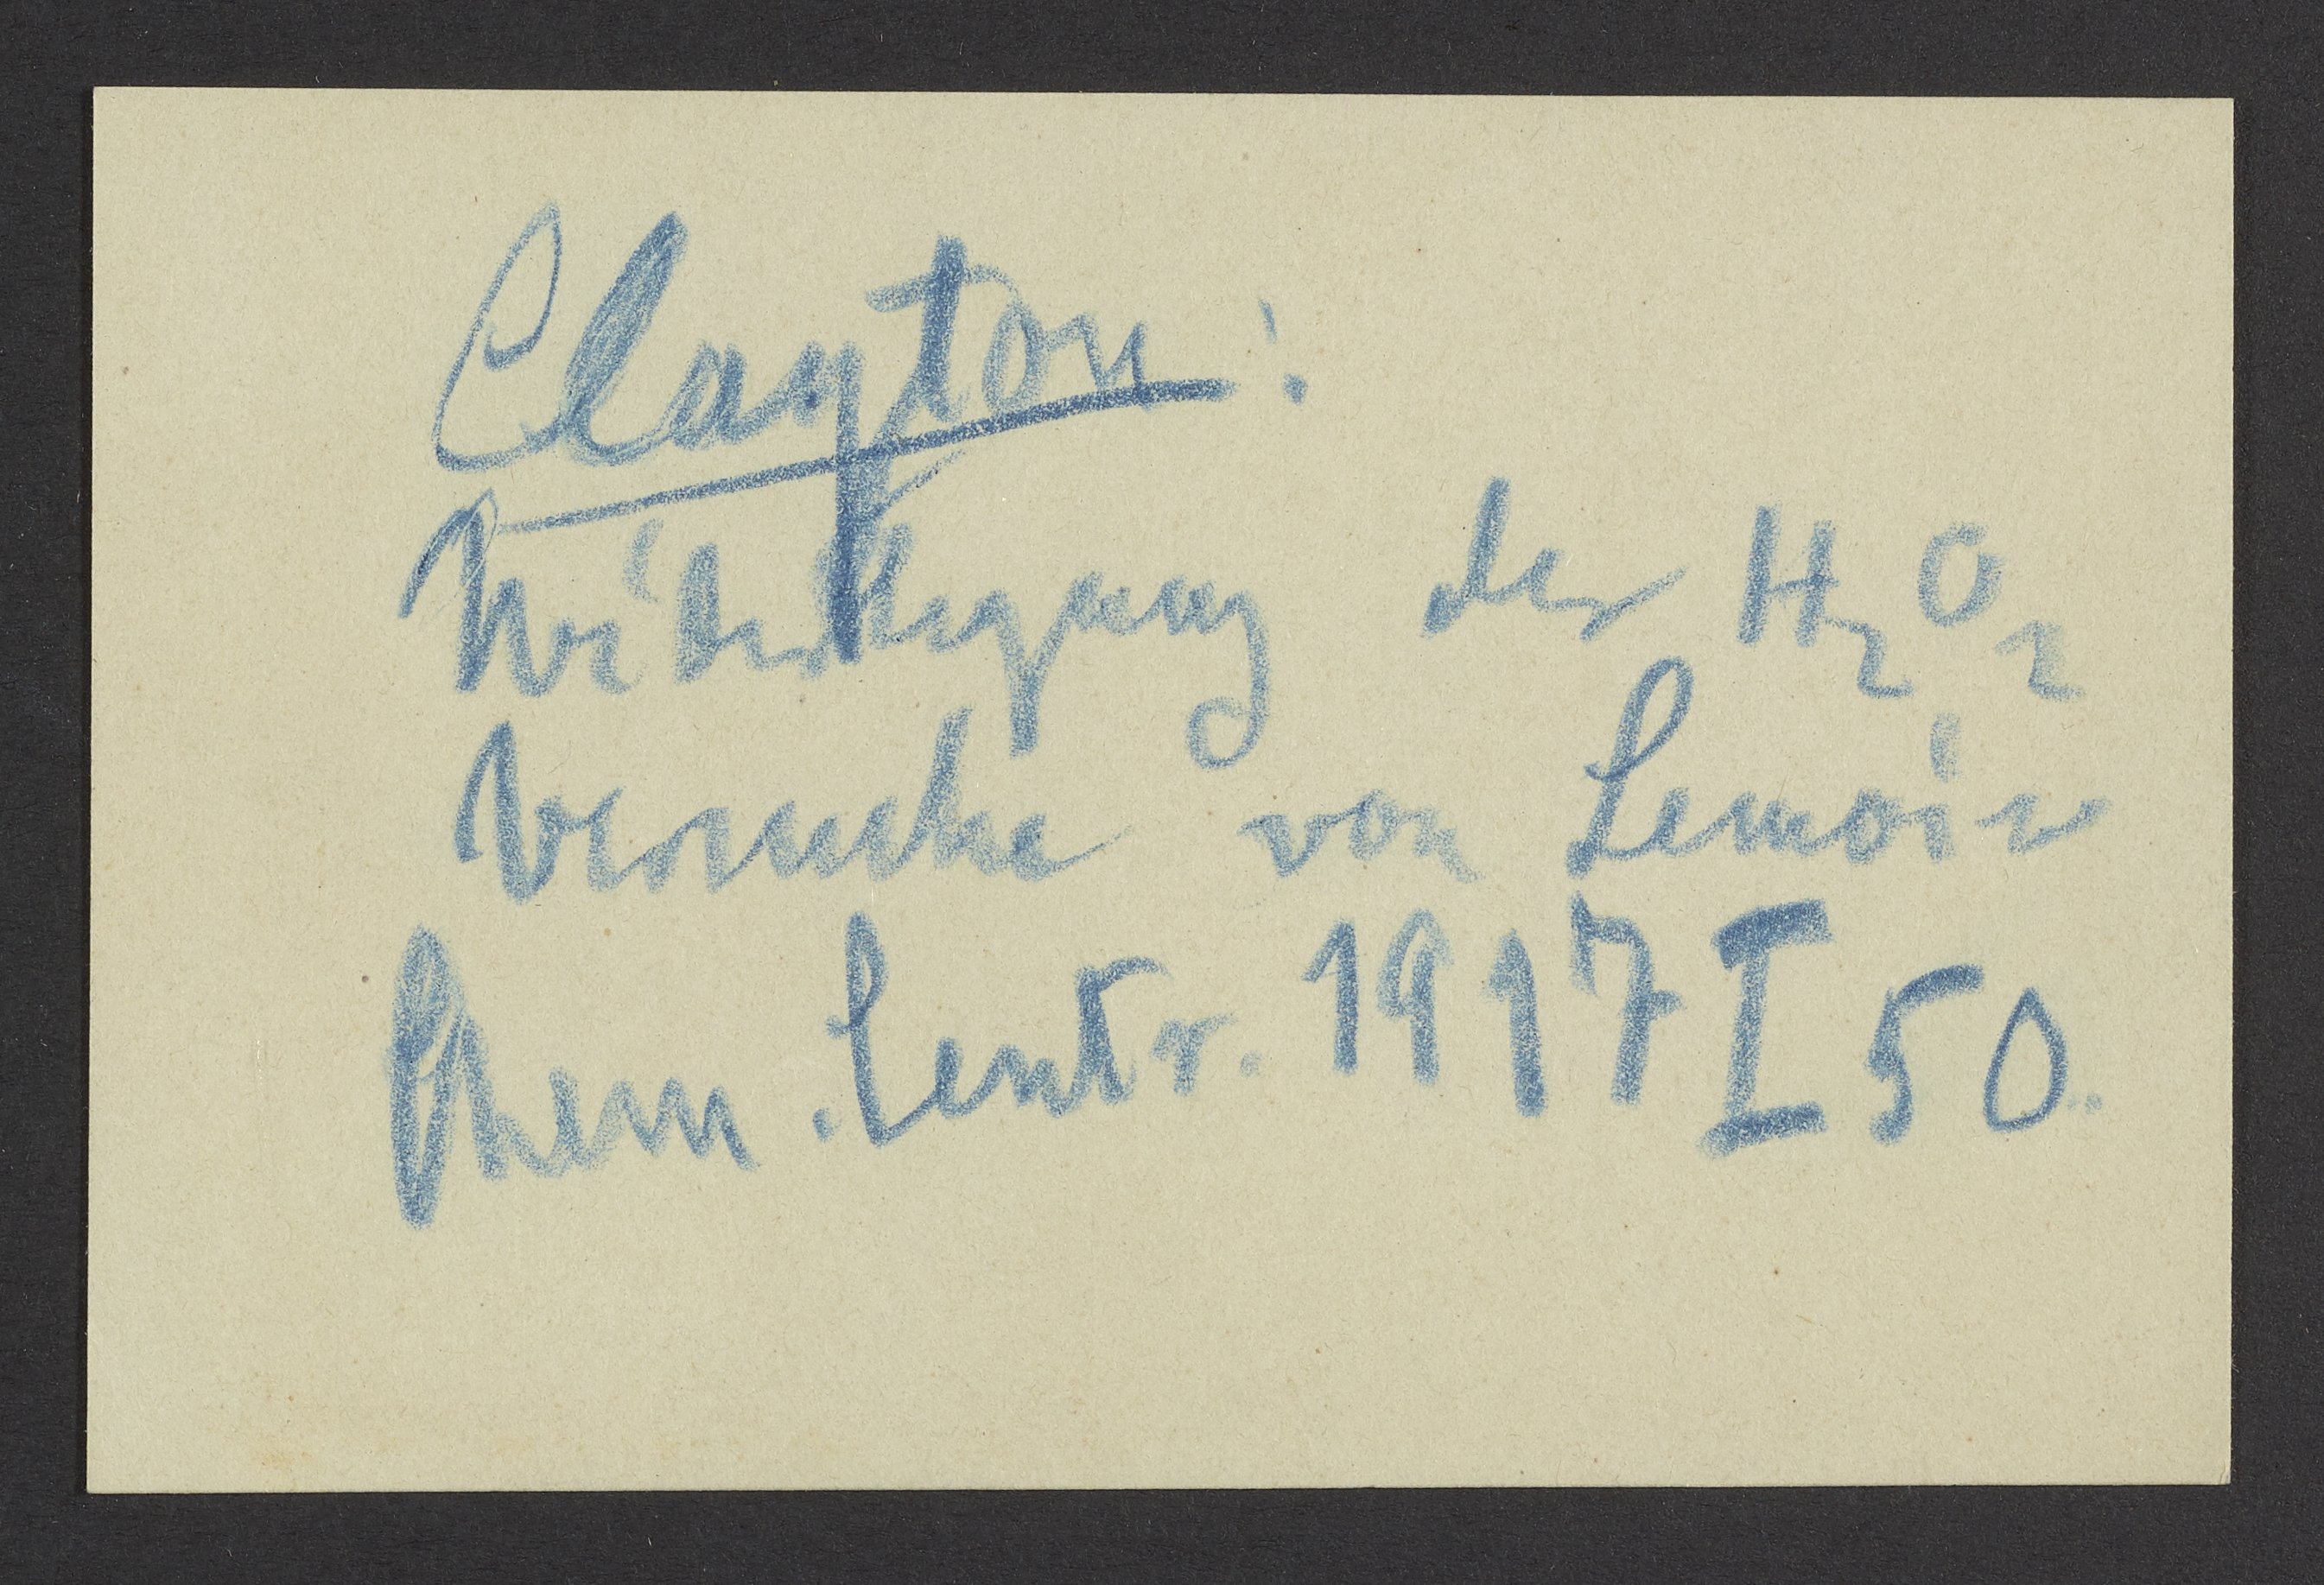 Clayton:
Widerlegung der H₂O₂
Versuche von Lemoine
Chem. Centr. 1917 I 50.